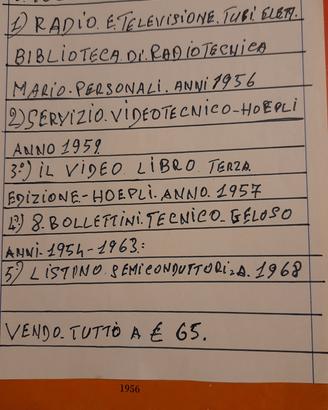 1) RADIO. E.TELEVISIONE. TUBI ELETT.
BIBLIOTECA.DI.RADIOTECNICA
MARIO.PERSONALI. ANNI 1956
2) SERVIZIO.VIDEOTECNICO-HOEPLI
ANNO 1959
3°) IL VIDEO LIBRO TERZA
EDIZIONE-HOEPLI.ANNO.1957
4°) 8.BOLLETTINI.TECNICO.GELOSO
ANNI.1954-1963:
5°) LISTINO SEMICONDUTTORI 1968
VENDO.TUTTO A € 65.
1956